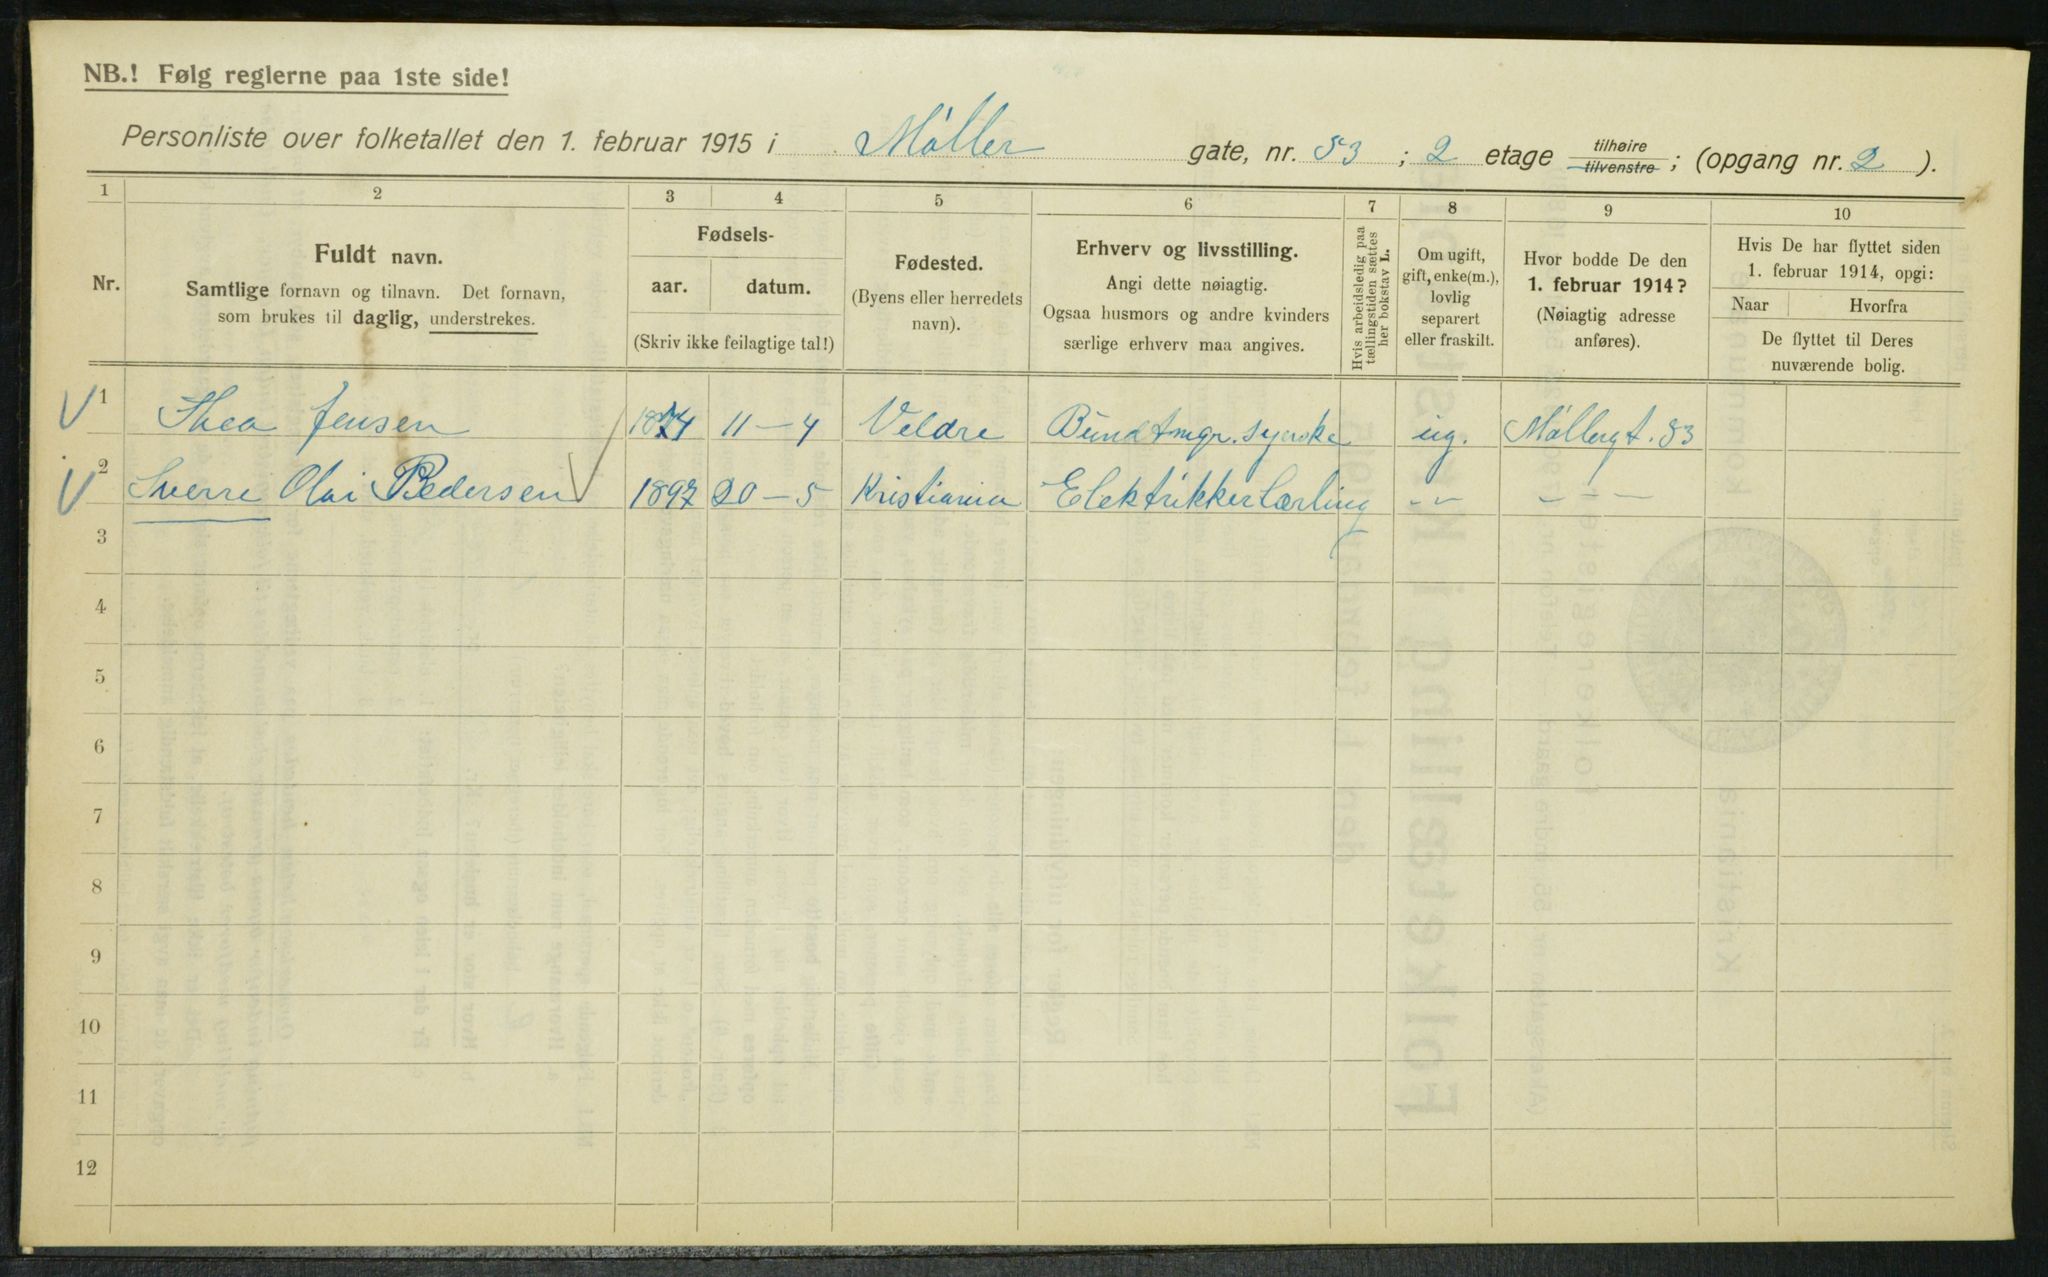 NB.! Følg reglerne paa 1ste side!
Personliste over folketallet den 1. februar 1915 i Møller gate, nr. 53 ; 2 etage tilhøire tilvenstre ; (opgang nr. 2 ).
1 2 3 4 5 6 7 8 9 10
Nr.
Fuldt navn.
Samtlige fornavn og tilnavn. Det fornavn,
som brukes til daglig, understrekes.
Fødsels-
aar. datum.
(Skriv ikke feilagtige tal!)
Fødested.
(Byens eller herredets
navn).
Erhverv og livsstilling.
Angi dette nøiagtig.
Ogsaa husmors og andre kvinders
særlige erhverv maa angives.
Hvis arbeidsledig paa
tællingstiden sættes
her bokstav L.
Om ugift,
gift, enke(m.),
lovlig
separert
eller fraskilt.
Hvor bodde De den
1. februar 1914?
(Nøiagtig adresse
anføres).
Hvis De har flyttet siden
1. februar 1914, opgi:
Naar Hvorfra
De flyttet til Deres
nuværende bolig.
1 Thea Jensen 1874 11-4 Veldre Buntmgr. syerske ug. Møllergt. 53
2 Sverre Olai Pedersen 1897 20-5 Kristiania Elektrikkerlærling -"- -"-
3
4
5
6
7
8
9
10
11
12